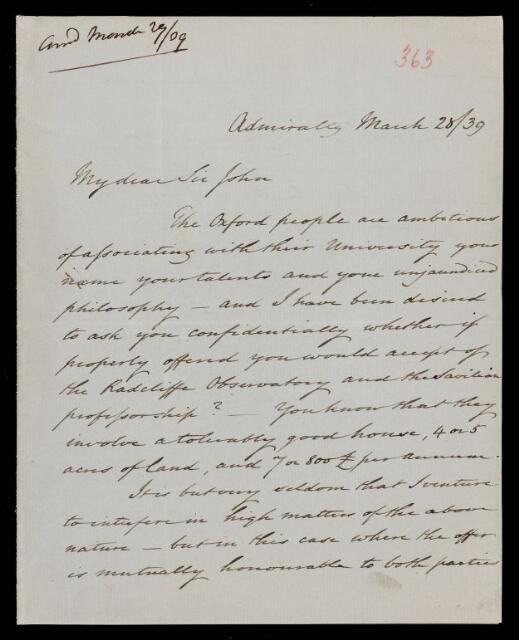 Ansd March 29/39
363
Admiralty March 28/39
My dear Sir John
The Oxford people are ambitious
of associating with their University your
name your talents and your unjaundiced
philosophy — and I have been desired
to ask you confidentially whether if
properly offered you would accept of
the Radcliffe Observatory and the Savilian
professorship? — You know that they
involve a tolerably good house, 4 or 5
acres of land, and 7 or 800£ per annum.
It is but very seldom that I venture
to interfere in high matters of the above
nature — but in this case where the offer
is mutually honourable to both parties